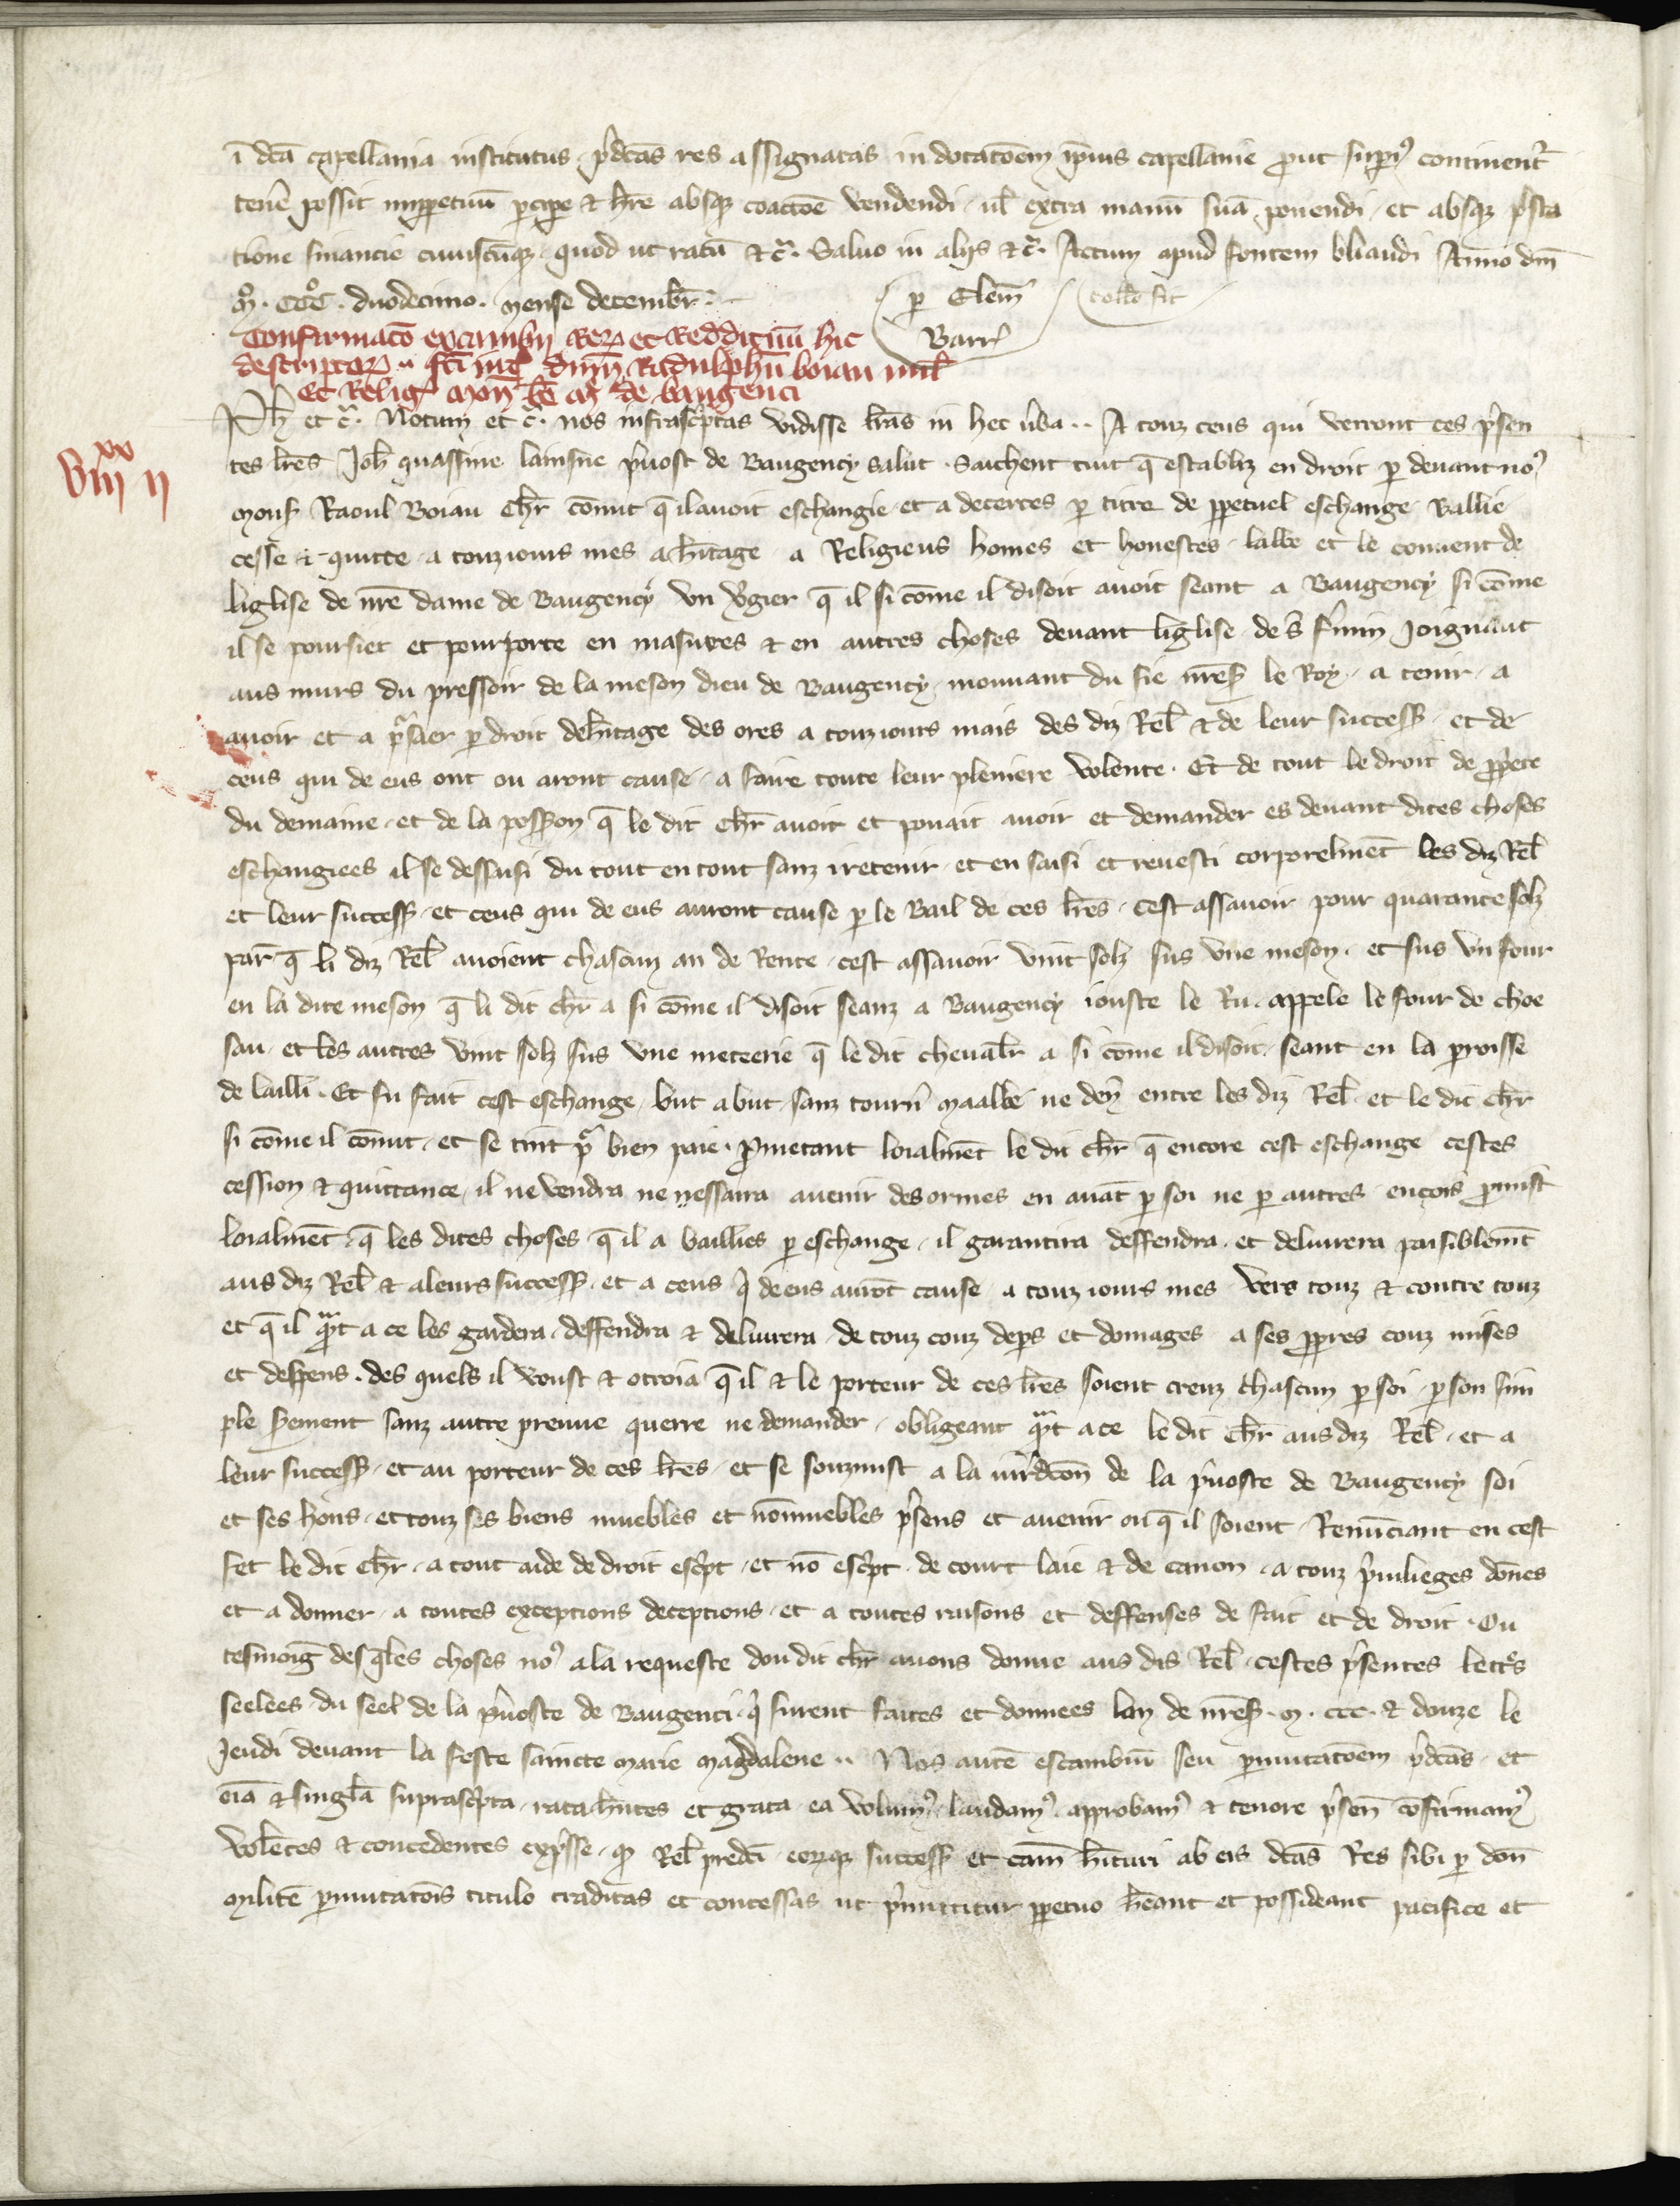 ī dc̄a capellania institutus p̄dc̄as res assignatas in dotac̄oem ip̄ius capellanie ꝓut suꝑiꝰ continent᷑
ten̄e possit imꝑpetuū ꝑcipe & h̄re absqꝫ coactōe vendendi ul̄ extra manū suā ponendi et absqꝫ p̄sta
tione financie cuiuscūqꝫ quod ut ratū &c̄. Saluo in alijs &c̄. Actum apud fontem bliaudi Anno dn̄i
mo. ccco. duodecimo. mense decembr̄.
ꝑ Clem̄
Collō fit
Barr̄
Confirmac̄o excambij Reꝝ et Reddituū hic
descriptoꝝ .. fc̄i int̄ dnm̄ Radulphū boiau mil̄
Et Reliḡ mon̄ be͞ m̄ de baugenci
Ph̄ et c̄. Notum et c̄. nos infrasc̄ptas vidisse lr̄as in hec ūba .. A touz ceus qui verront ces p̄sen
viiixx ii
tes lr̄es Joh̄ quassine lainsne p̄uost de Baugency salut. Saichent tuit q̄ establiz en droit ꝑ deuant noꝰ
mons̄ Raoul Boiau chr̄ cōnut q̄ il auoit eschangie et a decertes ꝑ titre de ꝑpetuel eschange Ballie
cesse & quitte a touziours mes a h̄itage a Religieus homes et honestes labbe et le conuent de
liglise de nr̄e dame de Baugency vn v̄gier q̄ il si cōme il disoit auoit seant a Baugency si cōme
il se poursiet et pourporte en masures & en autres choses deuant liglise de s̄ f̄min joignant
aus murs du pressoir de la meson dieu de Baugency mouuant du fie nr̄es̄ le Roy a tenir a
auoir et a p̄saer ꝑ droit deh̄itage des ores a touziours mais des diz Rel̄ & de leur success̄ et de
ceus qui de eus ont ou aront cause a faire toute leur pleniere volente. Et de tout le droit de ꝓp̄ete
du demaine et de la poss̄on q̄ le dit chr̄ auoit et pouait auoir et demander es deuant dites choses
eschangiees il se dessaisi du tout en tout sanz i retenir et en saisi et reuesti corporelmēt les diz Rel̄
et leur success̄ et ceus qui de eus auront cause ꝑ le Bail de ces lr̄es. cest assauoir pour quarante solz
par̄ q̄ li diz Rel̄ auoient chascun an de Rente cest assauoir vint solz sus vne meson. et sus vn four
en la dite meson q̄ li dit chr̄ a si cōme il disoit seanz a Baugency iouste le Ru appele le four de choe
sau et les autres vint solz sus vne meteerie q̄ le dit cheual̄r a si cōme il disoit seant en la ꝑroisse
de lailli. Et fu fait cest eschange but a but sanz tourn̄ maalle ne den̄ entre les diz Rel̄ et le dit chr̄
si cōme il cōnut et se tint p̄ bien paie. ꝓmetant loialmēt le dit chr̄ q̄ encore cest eschange cestes
cession & quittance il ne vendra ne nessaira auenir desormes en auāt ꝑ soi ne ꝑ autres ençois ꝓmist
loialmēt q̄ les dites choses q̄ il a baillies ꝑ eschange il garantira deffendra et deliurera paisiblemēt
aus diz Rel̄ & a leurs success̄ et a ceus q̄ de eus aurōt cause a touz iours mes vers touz & contre touz
et q̄ il q̄nt a ce les gardera deffendra & deliurera de touz couz deps̄ et domages a ses ꝓpres couz mises
et despens. des quels il voust & otroia q̄ il & le porteur de ces lr̄es soient creuz chascun ꝑ soi ꝑ son sim
ple s̄ement sanz autre preuue querre ne demander. obligeant q̄nt a ce le dit chr̄ aus diz Rel̄ et a
leur success̄ et au porteur de ces lr̄es et se souzmist a la iur̄dicōn de la p̄uoste de Baugency soi
et ses hōns et touz ses biens muebles et nōmuebles p̄sens et auenir ou q̄ il soient. Renūciant en cest
fet le dit chr̄ a tout aide de droit esc̄pt et nō esc̄pt de court laie & de canon a touz p̄uilieges dōnes
et a donner a toutes exceptions deceptions et a toutes raisons et deffenses de fait et de droit. Ou
tesmoiḡ des q̄les choses noꝰ a la requeste dou dit chr̄ auons donne aus dis Rel̄ cestes p̄sentes lett̄s
seelees du seel de la p̄uoste de Baugenci q̄ furent faites et donnees lan de nr̄es̄ m. ccc. & douze le
Jeudi deuant la feste saincte marie magdalene .. Nos autē escambiū seu ꝑmutac̄oem p̄dc̄as et
oīa & singl̄a suprasc̄pta rata h̄ntes et grata ea volumꝰ laudamꝰ approbamꝰ & tenore p̄sen̄ cōfirmamꝰ
volētes & concedentes exp̄sse qꝫ Rel̄ predc̄i eorumqꝫ success̄ et cam̄ h̄ituri ab eis dc̄as Res sibi ꝑ dc̄m
militē ꝑmutac̄ois titulo traditas et concessas ut p̄mittitur ꝑpetuo h̄eant et possideant pacifice et